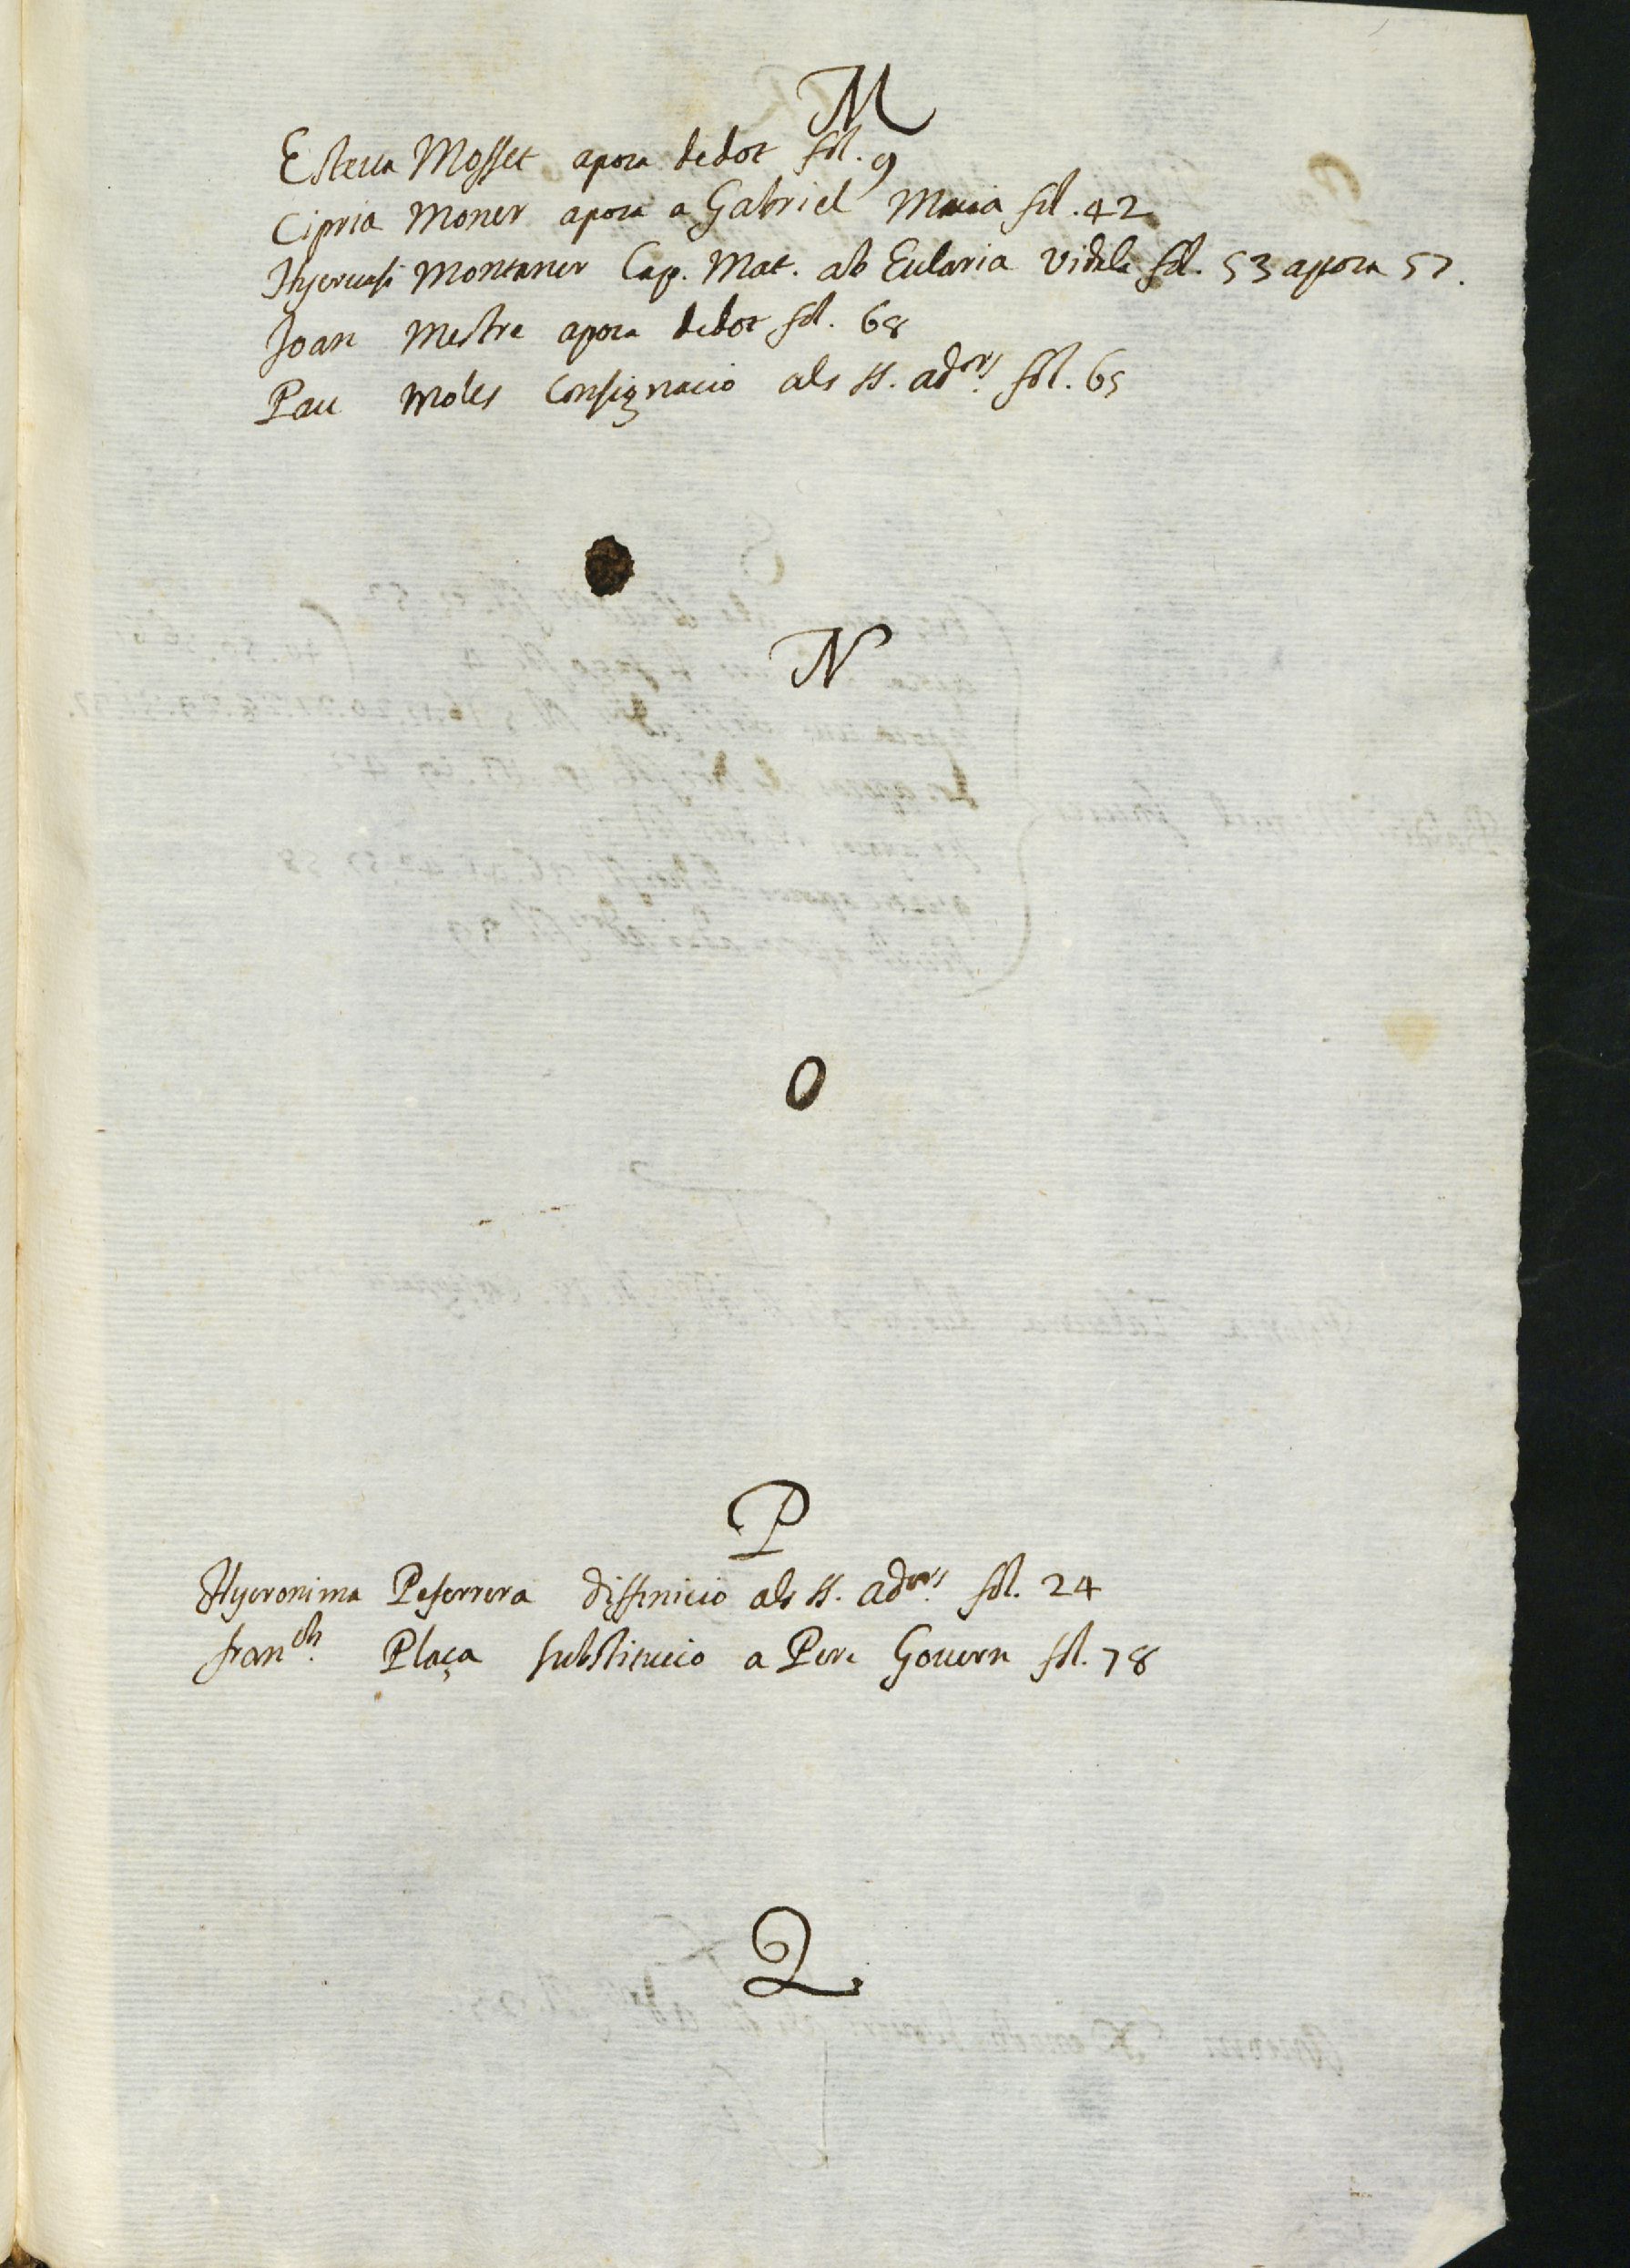 M
Esteva Mosset apoca de dot fol. 9
Cipria Moner apoca a Gabriel Macia fol. 42
Hyervasi Montaner Cap. Mat. ab Eularia Vidala fol. 53 appoca 57.
Joan Mestre apoca de dot fol. 68
Pau Moles Consignacio als ss. adors. fol. 65
N
O
P
Hyeronima Peferrera diffinicio als ss. adors. fol. 24
franch. Plaça substitucio a Pere Govern fol. 78
Q